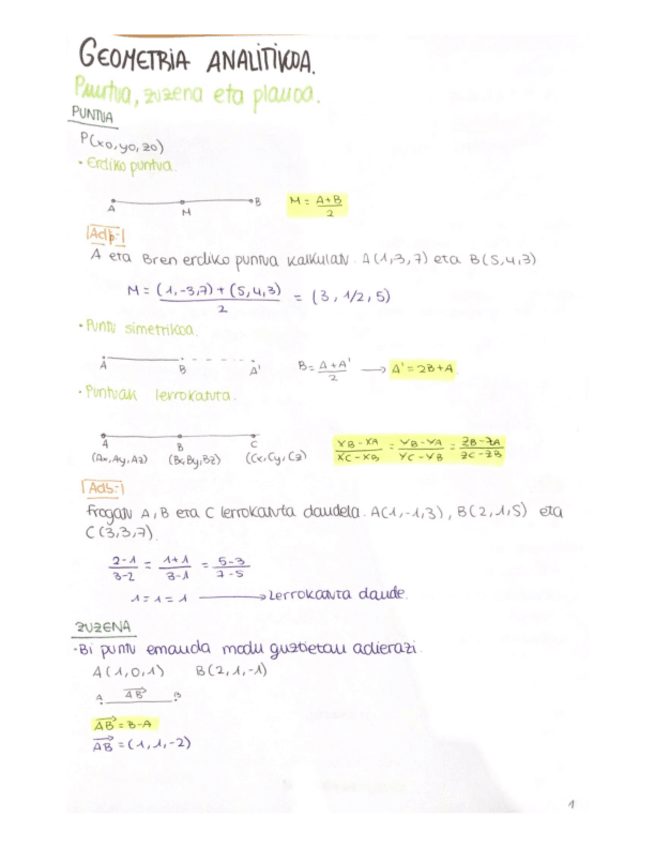 GEOMETRIA ANALITIKOA.
Puntua, zuzena eta planoa.
PUNTUA
P(x0, y0, z0)
• Erdiko puntua.
A M B M = A+B / 2
Adb-1
A eta Bren erdiko puntua kalkulan. A(1,3,7) eta B(5,4,3)
M = (1,-3,7) + (5,4,3) / 2 = (3, 1/2, 5)
• Puntu simetrikoa.
A B A' B = A+A' / 2 → A' = 2B+A
• Puntuak lerrokatuta.
A B C
(Ax, Ay, Az) (Bx, By, Bz) (Cx, Cy, Cz) XB-XA / XC-XB = YB-YA / YC-YB = ZB-ZA / ZC-ZB
Adb-1
Frogan A, B eta C lerrokatuta daudela. A(1,-1,3), B(2,1,5) eta
C(3,3,7).
2-1 / 3-2 = 1+1 / 3-1 = 5-3 / 7-5
1 = 1 = 1 → Lerrokatuta daude.
ZUZENA
• Bi puntu emanda modu guztietan adierazi.
A(1,0,1) B(2,1,-1)
A AB B
AB = B-A
AB = (1,1,-2)
1